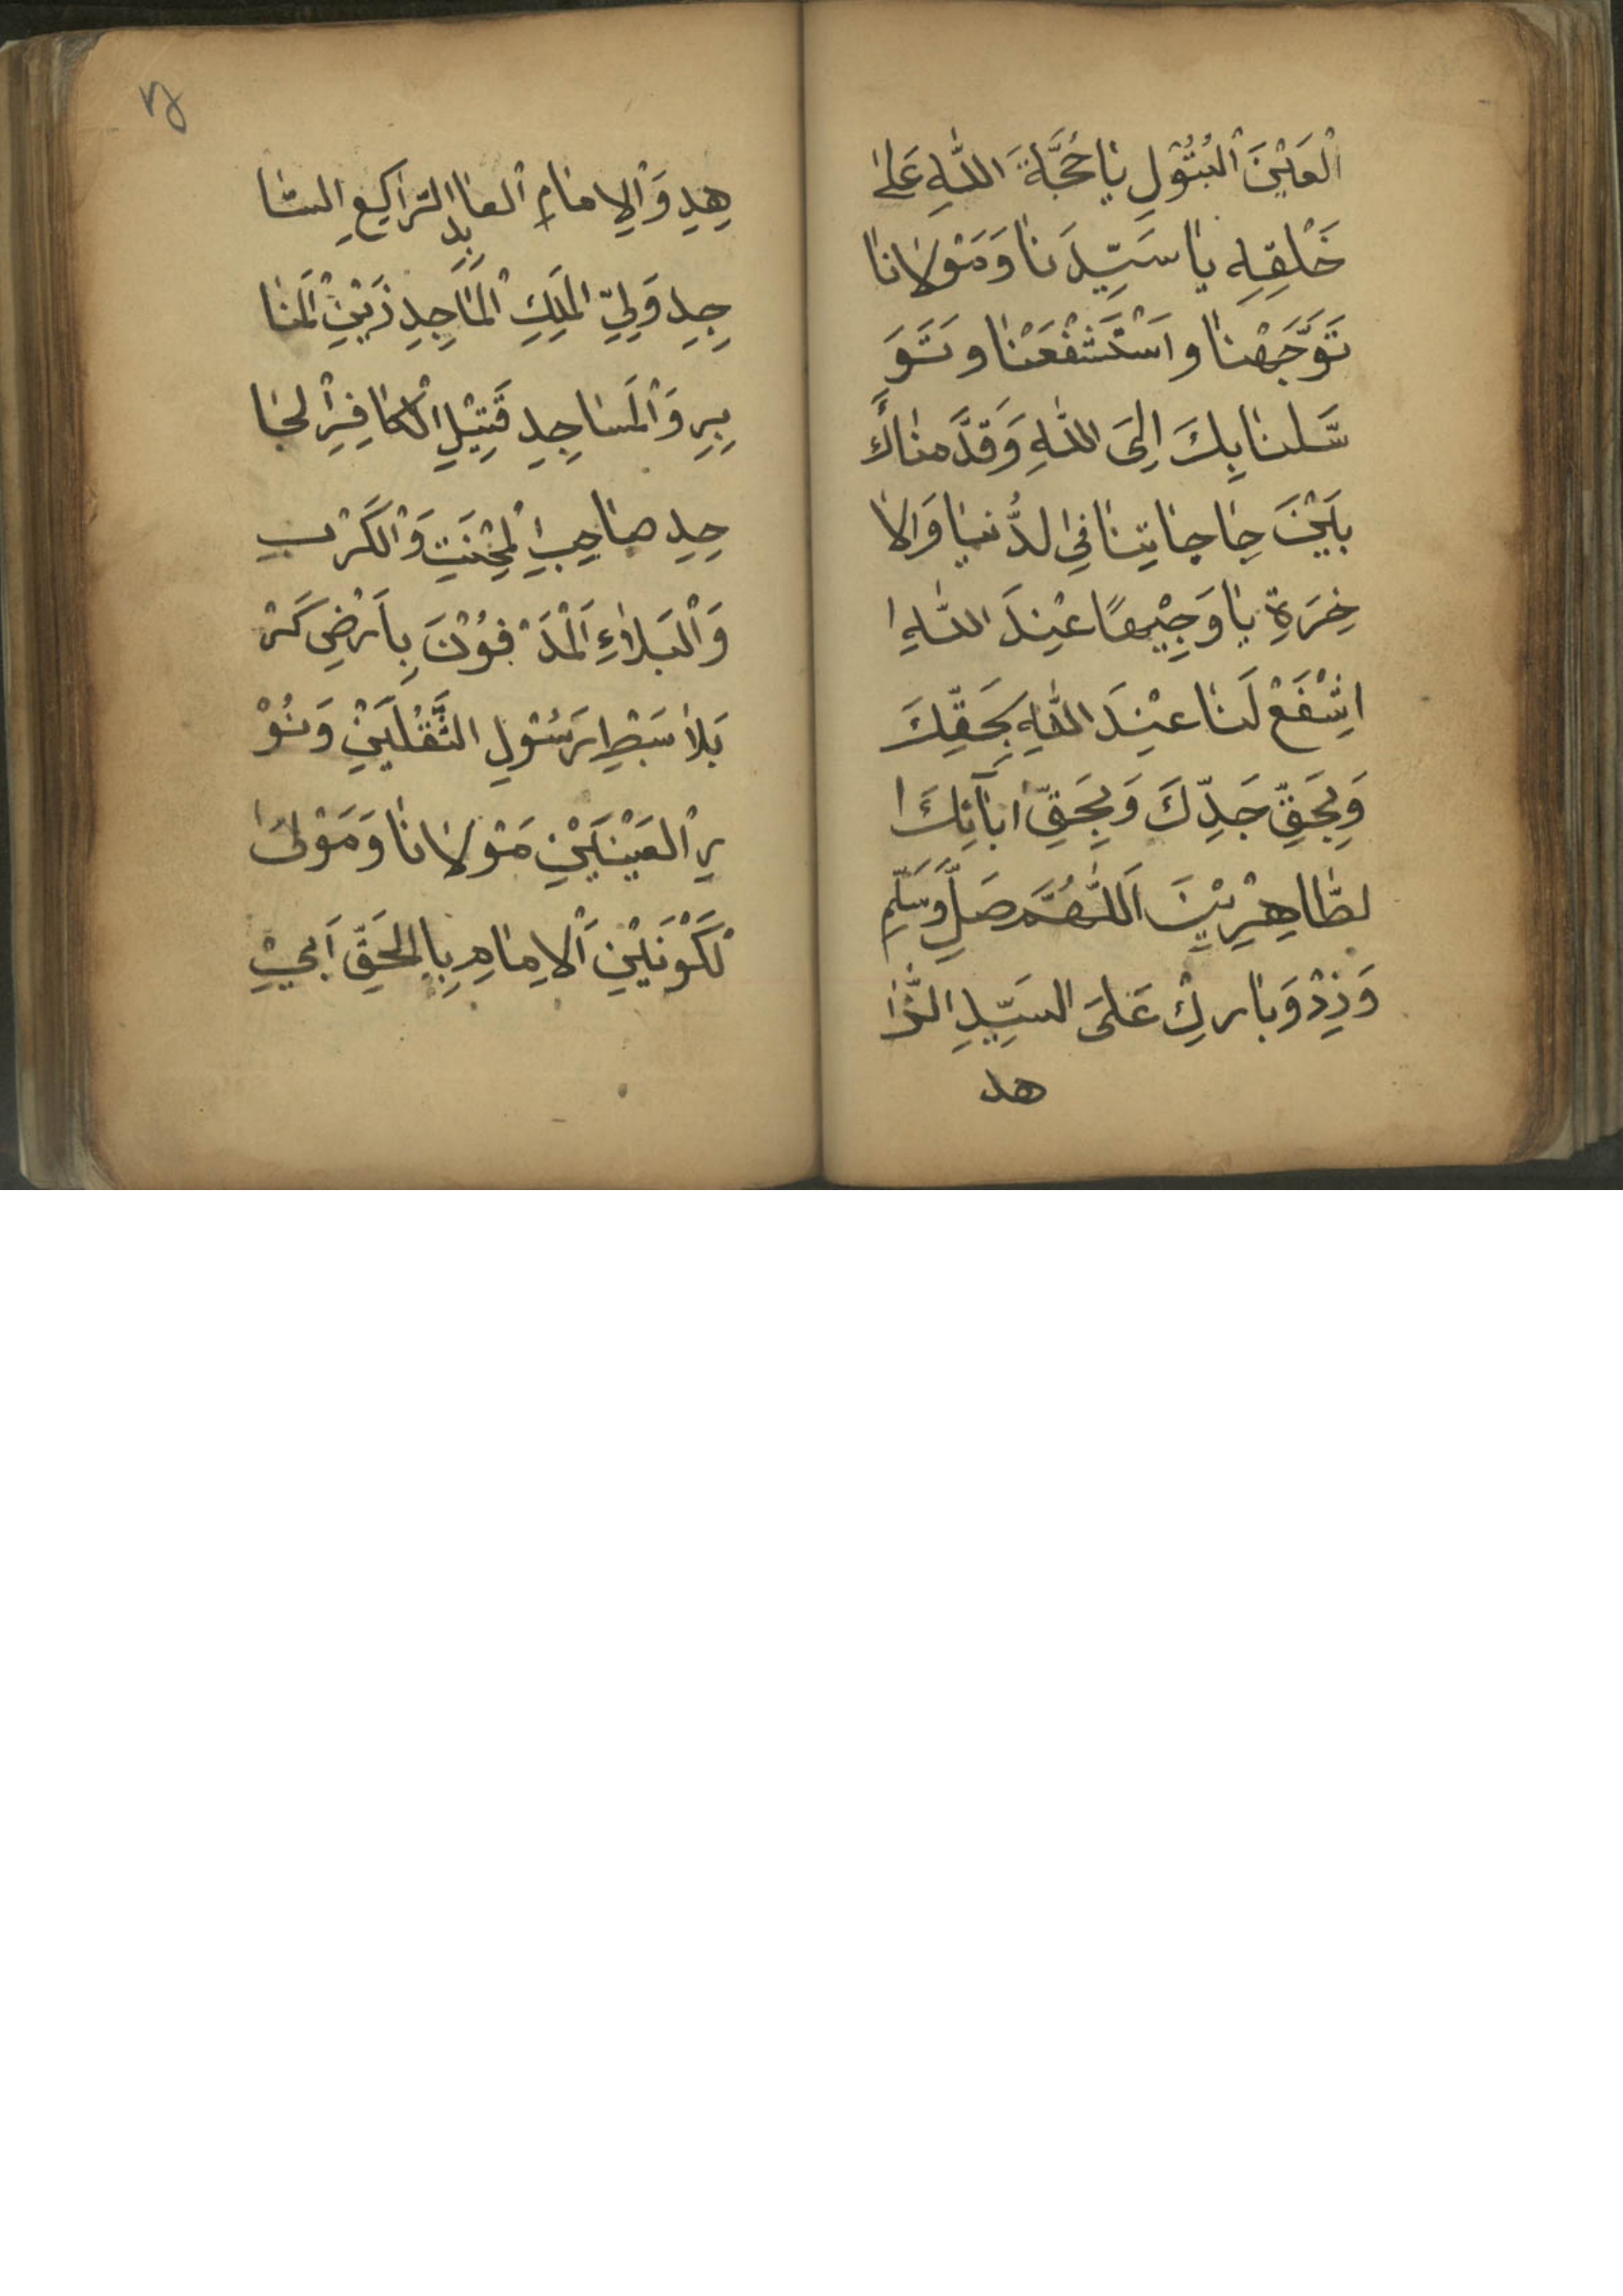 الْعَيْنَ الْبُتُوْلِ يَا حُجَّةَ اللّٰهِ عَلىٰ
خَلْقِهِ يَا سَيِّدَنَا وَمَوْلَانَا
تَوَجَّهْنَا وَاسْتَشْفَعْنَا وَتَوَ
سَّلنَا بِكَ اِلىَ اللّٰهِ وَقَدَّمنَاكَ
بَيْنَ حَاجَاتِنَا فِي لدُّنيَا وَالا
خِرَةِ يَا وَجِيْهًا عِنْدَ اللّٰهِ ا
اشْفَعْ لَنَا عِنْدَ اللّٰهِ بِحَقِّكَ
وَبِحَقِّ جَدِّكَ وَبِحَقِّ ابَآئِكَ ا
لطَّاهِرِيْنَ اَللّٰهُمَّ صَلِّ وَسَلِّم
وَزِدْ وَبَارِكْ عَلىَ السَيِّدِ الزَّا
هد
هِدِ وَالْاِمَامِ الْعَابِدِ الرَّاكِعِ السَّا
جِدِ وَلِيِّ الْمَلِكِ الْمَاجِدِ زَيْنِ الْمَنَا
بِرِ وَالْمَسَاجِدِ قَتِيْلِ الْكَافِرِ الْجَا
حِدِ صَاحِبِ الْمِحْنَتِ وَالْكَرْبِ
وَالْبَلَاءِ اَلْمَدْفُوْنَ بِاَرْضِ كَرْ
بَلا سَبْطِ رَسُوْلِ الثَّقْلَيْنِ وَنُوْ
رِ الْعَيْنَيْنِ مَوْلَانَا وَمَوْلىَ ا
لْكَوْنَيْنِ اَلْاِمَامِ بِالْحَقِّ اَبِيْ